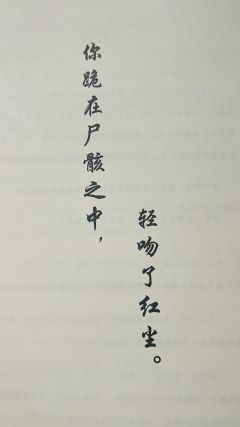 你跪在尸骸之中，
轻吻了红尘。